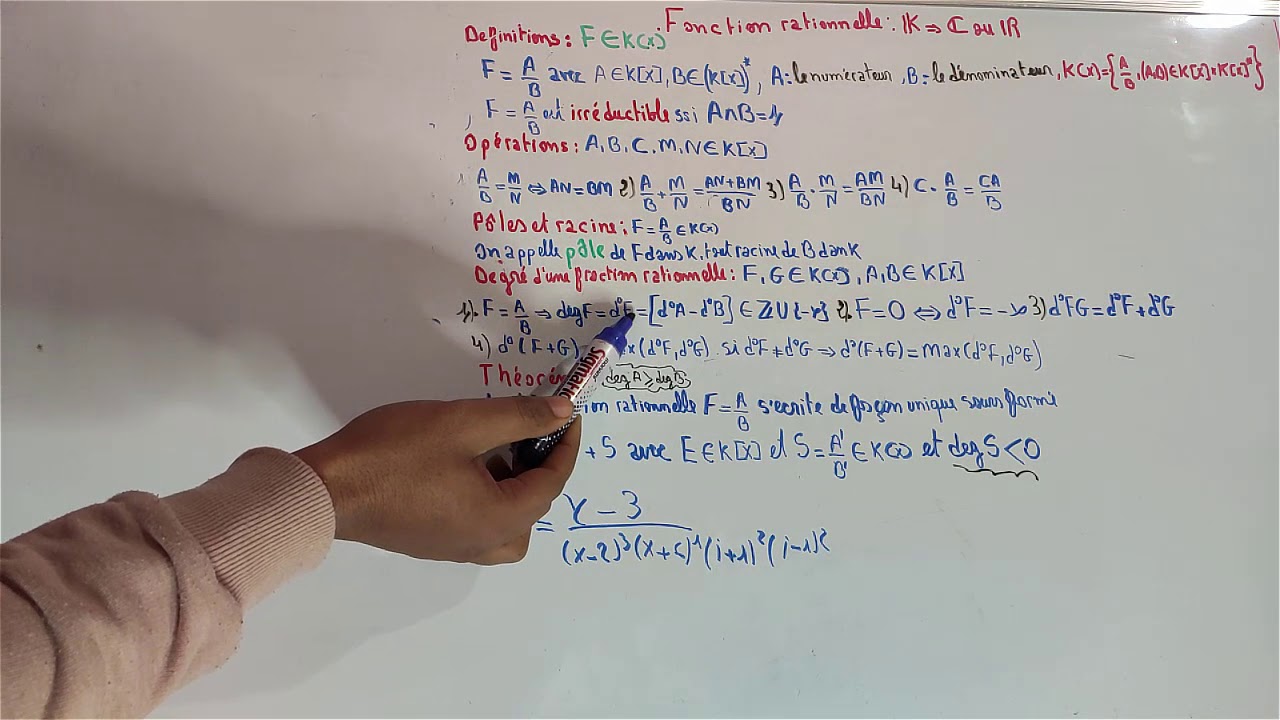 Fonction rationnelle : IK ⇒ ℂ ou IR
Définitions : F∈K(x)
F = A/B avec A∈K[x], B∈(K[x])*, A: le numérateur, B: le dénominateur, K(x)={A/B, (A,B)∈K[x]×K[x]*}
, F = A/B est irréductible ssi A∧B=1
Opérations : A, B, C, M, N∈K[x]
A/B = M/N ⇔ AN = BM 2) A/B + M/N = AN+BM/BN 3) A/B · M/N = AM/BN 4) C · A/B = CA/B
Pôles et racine : F = A/B ∈ K(x)
On appelle pôle de F dans K, tout racine de B dans K
Degré d'une fraction rationnelle : F, G∈K(x), A, B∈K[x]
1). F = A/B ⇒ deg F = d°F = [d°A - d°B] ∈ ℤ∪{-∞} 2). F = 0 ⇔ d°F = -∞ 3) d°FG = d°F + d°G
4) d°(F+G) (d°F, d°G) . si d°F ≠ d°G ⇒ d°(F+G) = max(d°F, d°G)
deg A ≥ deg B
rationnelle F = A/B s'ecrite de façon unique sous forme
+ S avec E∈K[x] et S = A'/B' ∈ K(x) et deg S < 0
= x - 3
(i+1)² (i-1)²
Signature